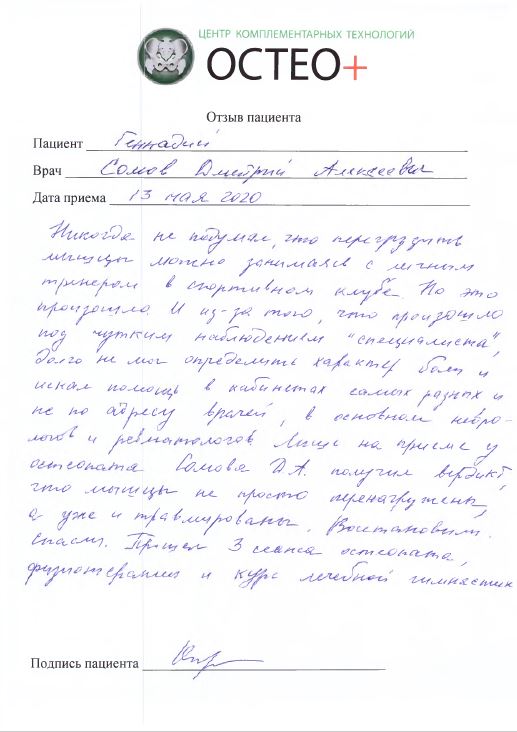 ЦЕНТР КОМПЛЕМЕНТАРНЫХ ТЕХНОЛОГИЙ
ОСТЕО+
Отзыв пациента
Пациент Геннадий
Врач Сомов Дмитрий Алексеевич
Дата приема 13 мая 2020
Никогда не подумал, что перегрузить
мышцы можно занимаясь с личным
тренером в спортивном клубе. Но это
произошло. И из-за того, что произошло
под чутким наблюдением "специалиста",
долго не мог определить характер боли и
искал помощь в кабинетах самых разных и
не по адресу врачей, в основном невро-
логов и ревматологов. Лишь на приеме у
остеопата Сомова Д.А. получил вердикт,
что мышцы не просто перенагружены,
а уже и травмированы. Восстановили.
Спасли. Прошел 3 сеанса остеопата,
физиотерапии и курс лечебной гимнастик
Подпись пациента